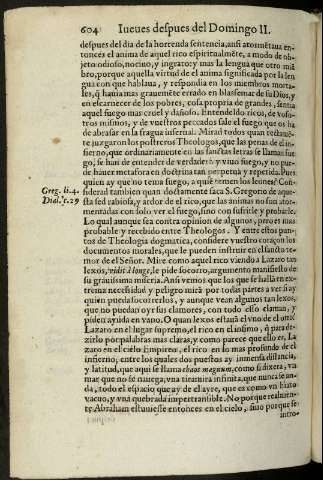 604 Iueues despues del Domingo II.
despues del dia de la horrenda sentencia, ansi atormẽtaua en-
tonces el anima de aquel rico espiritualmẽte, a modo de ob-
jeto odioso, nociuo, y ingrato: y mas la lengua que otro miẽ
bro, porque aquella virtud de el anima significada por la len
gua con que hablaua, y respondia en los miembros morta-
les, q̃ hauia mas grauemẽte errado en blasfemar de su Dios, y
en escarnecer de los pobres, cosa propria de grandes, sentia
aquel fuego mas cruel y dañoso. Entendeldo rico, de voso-
tros mismos, y de vuestros peccados sale el fuego que os ha
de abrasar en la fragua infernal. Mirad todos quan rectamẽ-
te juzgaron los postreros Theologos, que las penas de el in-
fierno, que ordinariamente en las sanctas letras se llaman fue
go, se han de entender de verdadero y viuo fuego, y no pue-
de hauer metafora en doctrina tan perpetua y repetida. Pues
quien ay que no tema fuego, a quiẽ temen los leones? Con-
Greg. li. 4. siderad tambien quan doctamente saca S. Gregorio de aque-
Dial. c. 29 sta sed rabiosa, y ardor de el rico, que las animas no son ator-
mentadas con solo ver el fuego, sino con sufrirle y probarle.
Lo qual aunque sea contra opinion de algunos, pero es mas
probable y recebido entre Theologos. Y entre estos pun-
tos de Theologia dogmatica, considere vuestro coraçon los
documentos morales, que le pueden instruir en el sancto te-
mor de el Señor. Mire como aquel rico viendo a Lazaro tan
lexos, vidit à longè, le pide socorro, argumento manifiesto de
su grauissima miseria. Ansi vemos que los que se hallã en ex-
trema necessidad y peligro mirã por todas partes a ver si ay
quien pueda socorrerlos, y aunque vean algunos tan lexos,
que no puedan oyr sus clamores, con todo esso claman, y
piden ayuda en vano. O quan lexos estaua el vno de el otro!
Lazaro en el lugar supremo, el rico en el infimo, ò para de-
zirlo por palabras mas claras, y como parece que ello es, La
zaro en el cielo Empireo, el rico en lo mas profundo de el
infierno, entre los quales dos puestos ay immensa distancia,
y latitud, que aqui se llama chaos magnum, como si dixera, vn
mar que no se nauega, vna tiramira infinita, que nunca se an-
da, todo el espacio que ay de el ayre, que es como vn hiato
vacuo, y vna quebrada impenetranble. No porque realmen-
te Abraham estuuiesse entonces en el cielo, sino porque se
intro-